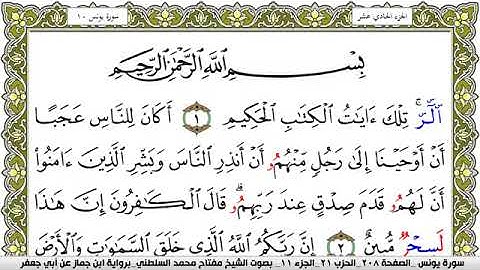 الجزء الحادي عشر
سورة يونس ١٠
بِسْمِ اللَّهِ الرَّحْمَٰنِ الرَّحِيمِ
الٓر ۚ تِلْكَ ءَايَٰتُ الْكِتَٰبِ الْحَكِيمِ ١ أَكَانَ لِلنَّاسِ عَجَبًا
أَنْ أَوْحَيْنَا إِلَىٰ رَجُلٍ مِنْهُمُۥ أَنْ أَنْذِرِ النَّاسَ وَبَشِّرِ الَّذِينَ ءَامَنُوا
أَنَّ لَهُمُۥ قَدَمَ صِدْقٍ عِنْدَ رَبِّهِمُۥ ۗ قَالَ الْكَٰفِرُونَ إِنَّ هَٰذَا
لَسِحْرٌ مُبِينٌ ٢ إِنَّ رَبَّكُمُ اللَّهُ الَّذِي خَلَقَ السَّمَٰوَٰتِ وَالْأَرْضَ
سورة يونس_الصفحة ٢٠٨_الحزب ٢١_الجزء ١١_ بصوت الشيخ مفتاح محمد السلطني_برواية ابن جماز عن أبي جعفر